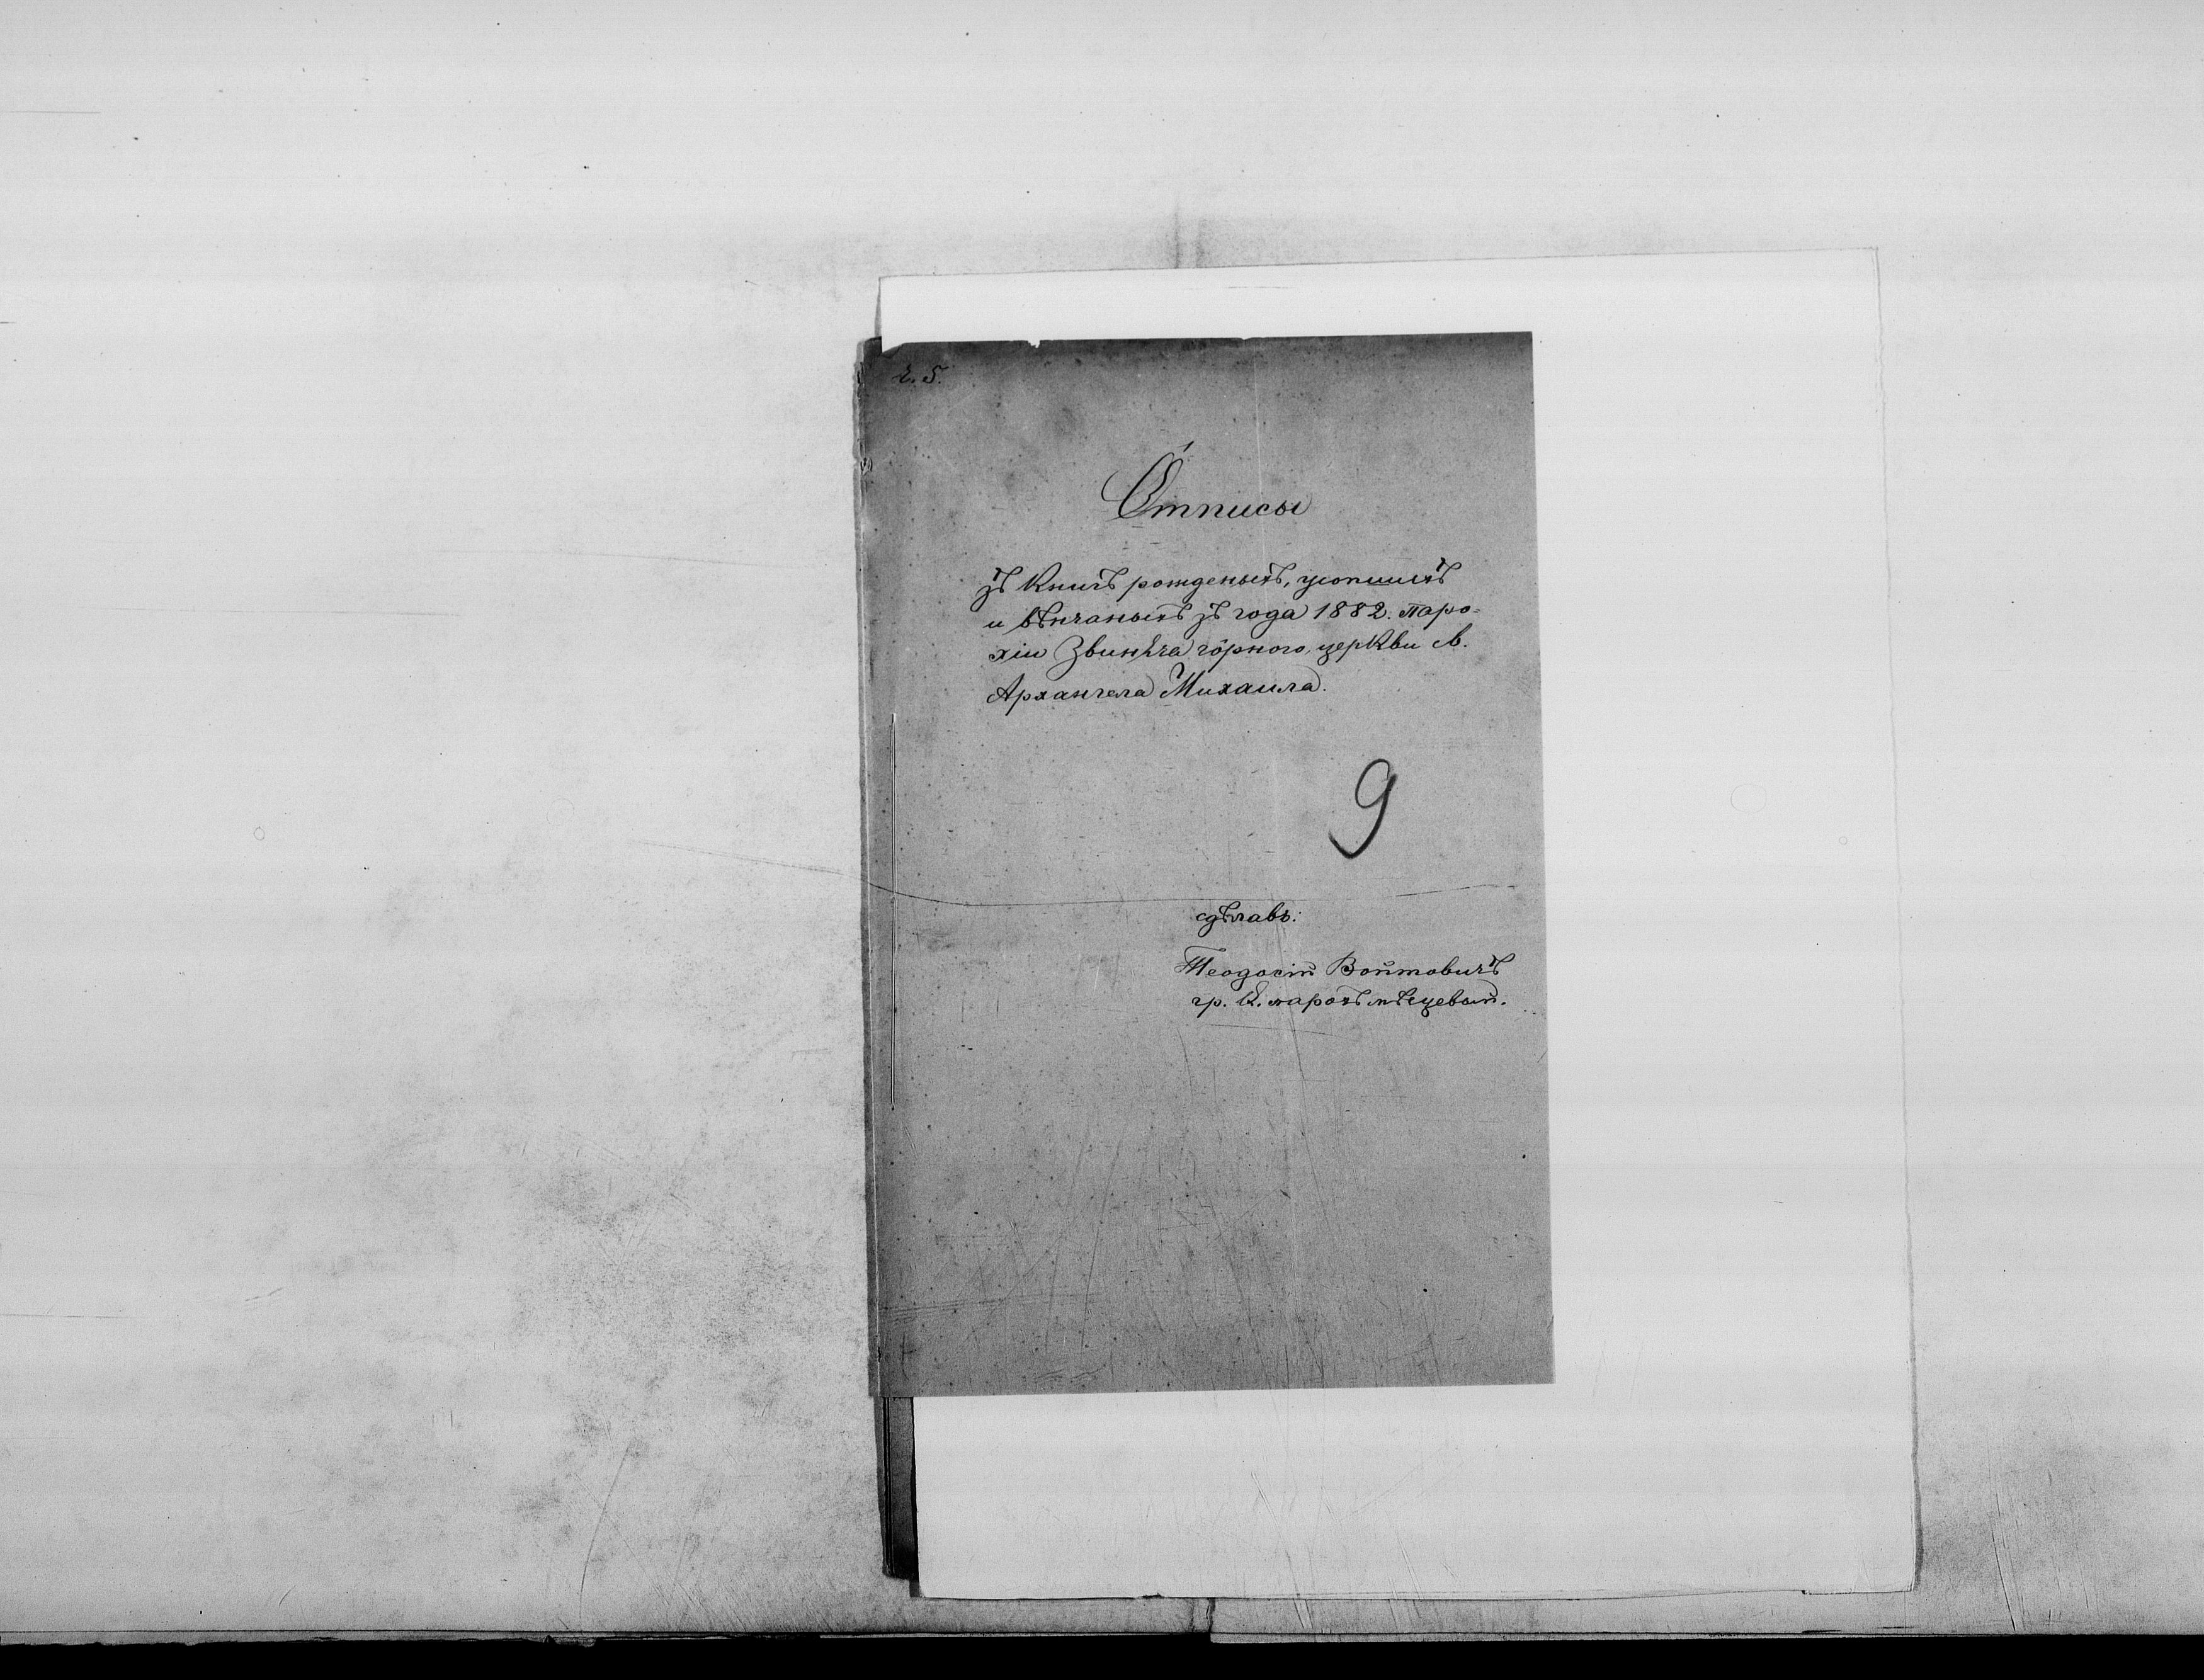 Ч. 5.
Ôтписы
зъ Книгъ рожденыхъ, усопшихъ
и вѣнчаныхъ зъ года 1882. паро-
хіи Звиняча го̂рного, церкви св.
Архангела Михаила.
9
сдѣлавъ:
Теодосій Войтовичъ
гр. к. парохъ мѣсцевый.